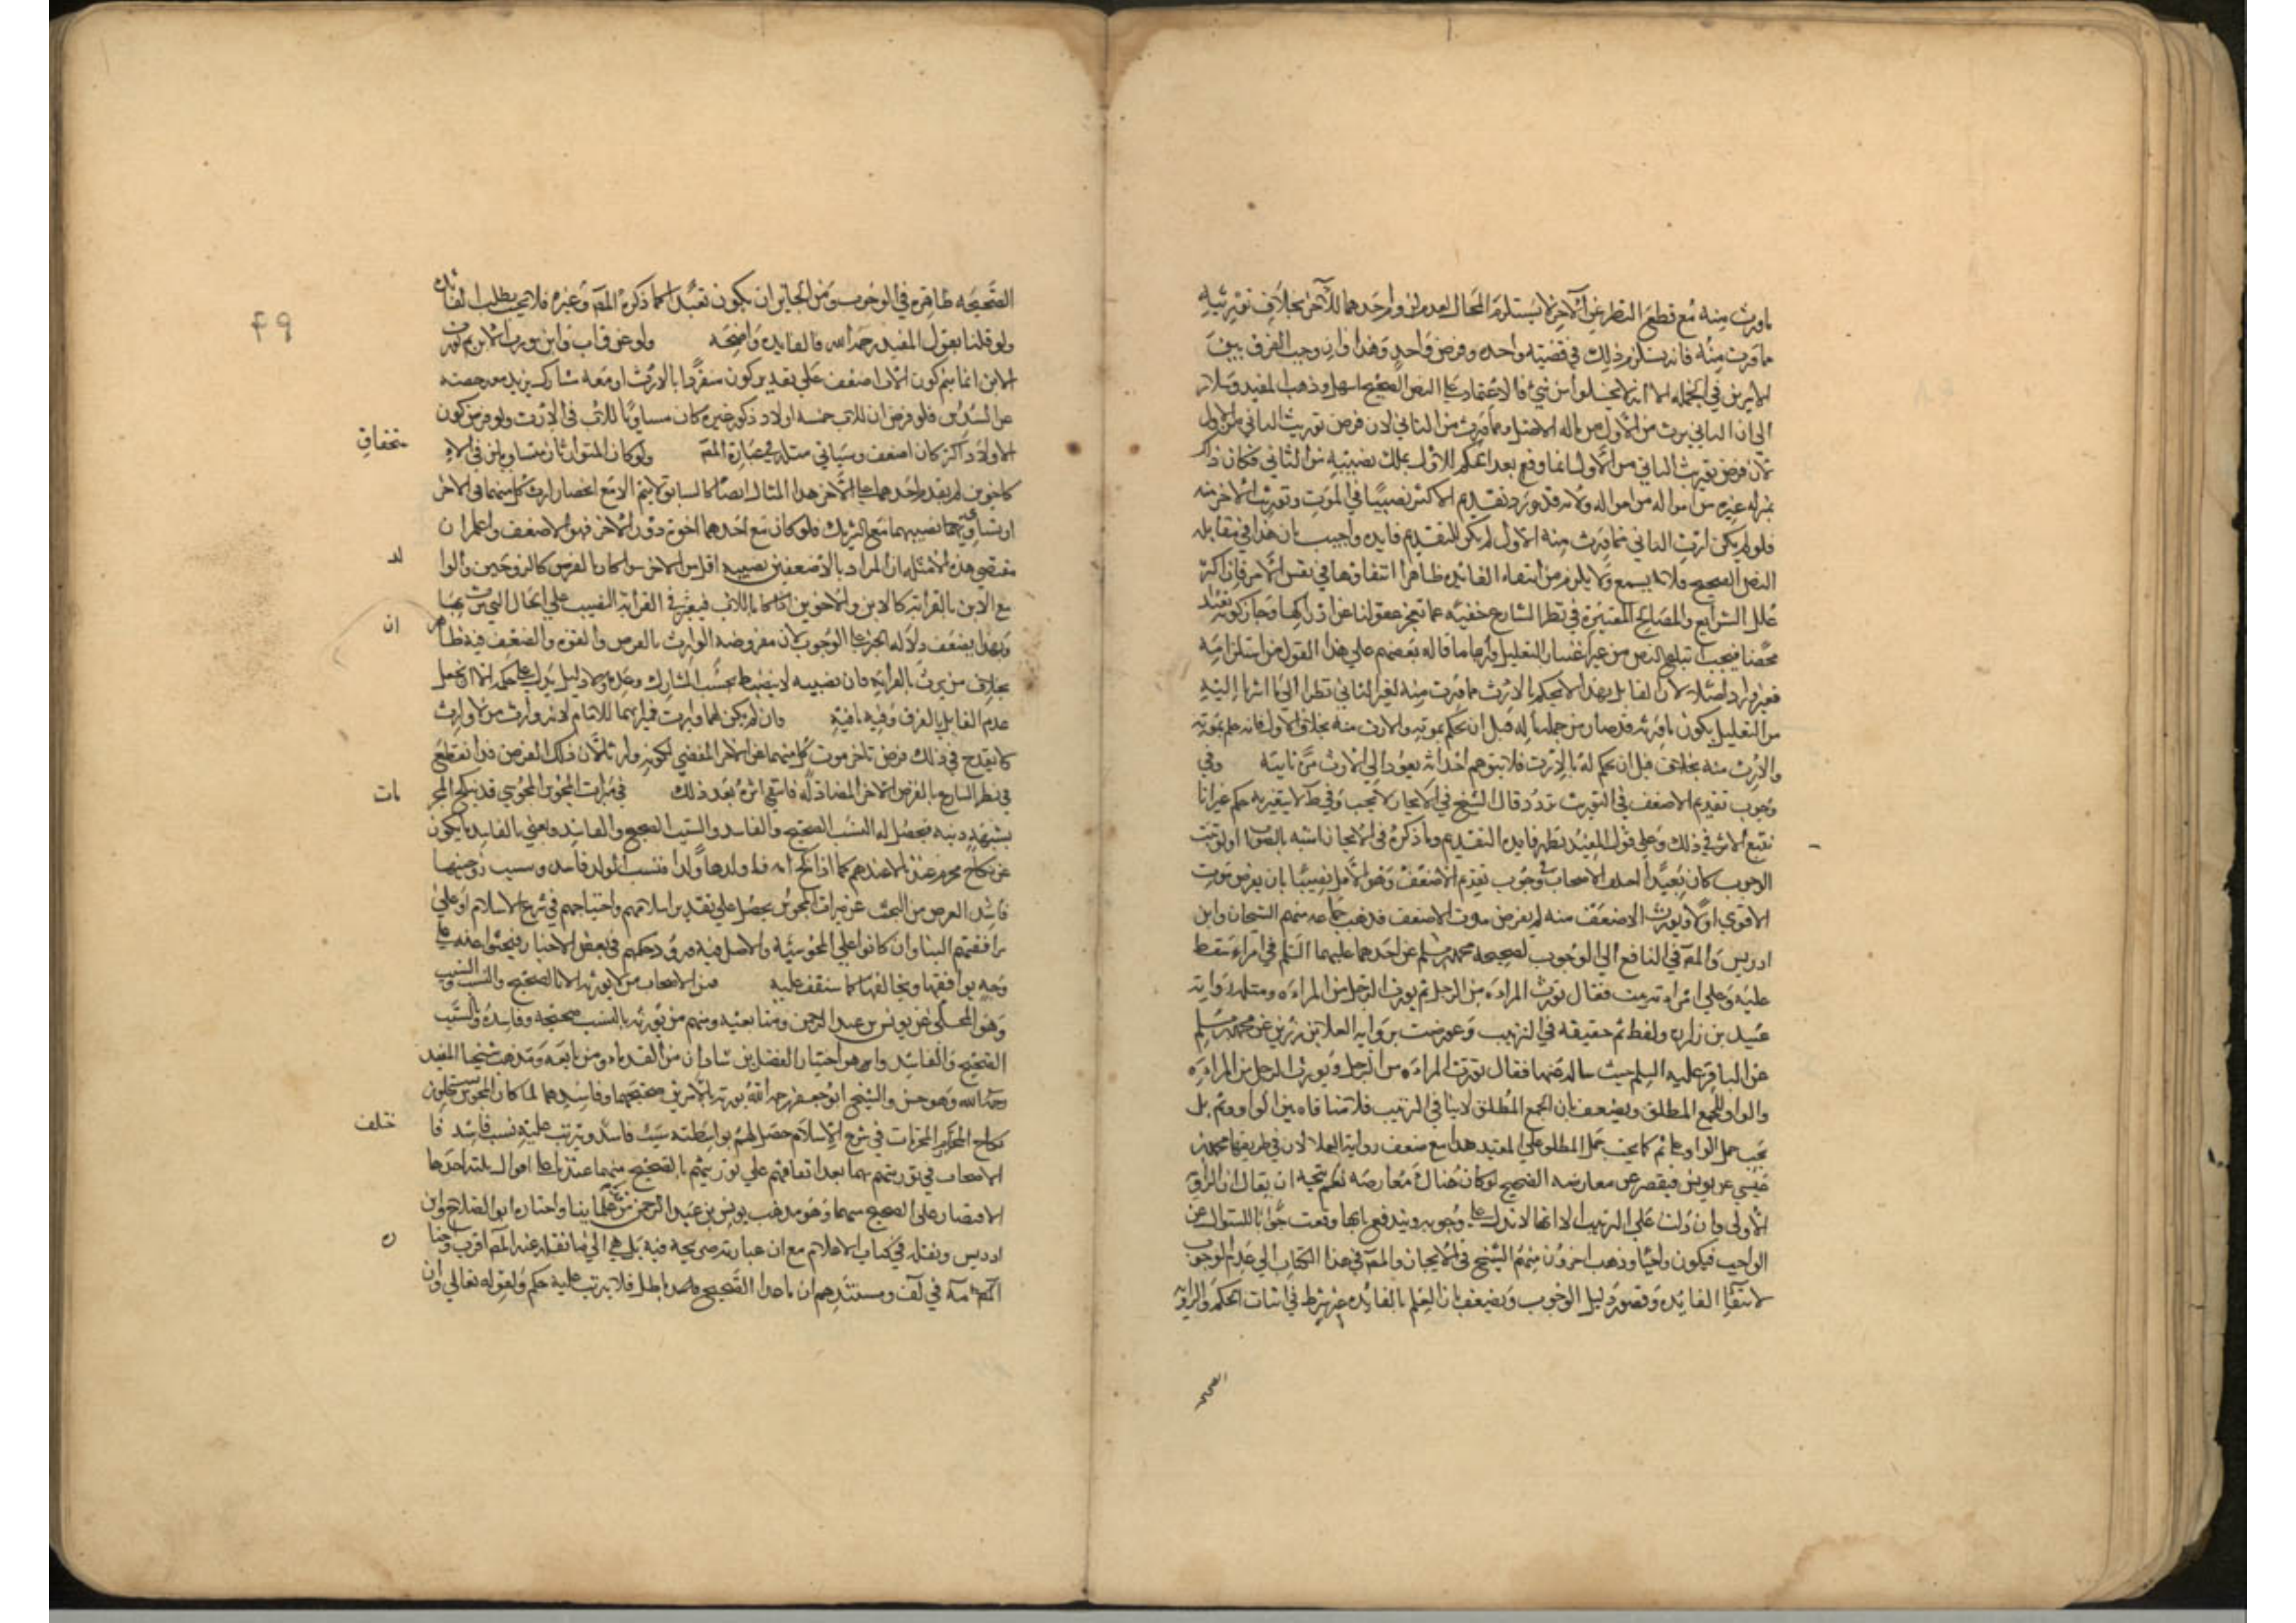 ماورث منه مع قطع النظر عن الآخر لا يستلزم المحال بعد موته وارجدهما للآخر بخلاف توريثه
ماورث منه فانه يستلزم ذلك في قضية واحدة وفرض واحد وهذا وان وجب الفرق بين
الامرين في الجملة الا انه لا يخلو من شيء فالاعتماد على النص الصحيح اسهل وذهب المفيد وسلار
الى ان الثاني يرث من الاول من ماله الاصلي ومما ورث من الثاني لان فرض توريث الثاني من الاول
لان فرض توريث الثاني من الاول انما وقع بعد الحكم للاول بملك نصيبه من الثاني فكان ذلك
بمنزلة غيره من امواله من امواله ولانه قد ورد تقديم الاكثر نصيبا في الموت وتوريث الآخر منه
فلو لم يكن ارث الثاني مما ورث منه الاول لم يكن للتقديم فايده واجيب بان هذا في مقابلة
النص الصحيح فلا يسمع ولا يلزم من انتفاء الفائدة ظاهرا انتفاؤها في نفس الامر فان اكثر
علل الشرايع والمصالح المعتبرة في نظر الشارع خفية عما تعجز عقولنا عن ادراكها وجاز كونه تعبدا
محضا فيجب اتباع النص من غير التعليل واما ما قاله بعضهم على هذا القول من استلزامه
فغير وارد اصلا لان القايل بهذا لا يحكم بالارث مما ورث منه لغير الثاني نظرا الى ما اشرنا اليه
من التعليل بكون ما ورثه قد صار من جملة ماله قبل ان يحكم بموته والارث منه بخلاف الاول فانه حكم بموته
والارث منه بخلاف قبل ان يحكم له بالارث فلا يتوهم احد انه يعود الى الارث مرة ثانية وفي
وجوب تقديم الاضعف في التوريث تردد قال الشيخ في الايجاز لا يجب وفي ط لا يتغير به حكم غير انا
نتبع الاثر في ذلك وعلى قول المفيد تظهر فايدة التقديم وما ذكره في الايجاز اشبه بالصواب ولو ثبت
الوجوب كان تعبدا اختلف الاصحاب في وجوب تقديم الاضعف وهو الاقل نصيبا بان يفرض موت
الاقوى اولا ويورث الاضعف منه ثم يفرض موت الاضعف فذهب جماعة منهم الشيخان وابن
ادريس والمص في النافع الى الوجوب لصحيحة محمد بن مسلم عن احدهما عليهما السلم في امراة سقط
عليه وعلى امراة بيت فقال تورث المراءه من الرجل ثم يورث الرجل من المراءه ومثله رواية
عبيد بن زراره ولفظ ثم حقيقه في الترتيب وعورضت برواية العلا بن رزين عن محمد بن مسلم
عن الباقر عليه السلم حيث ساله عنها فقال تورث المراءه من الرجل ويورث الرجل من المراءه
والواو للجمع المطلق ويضعف بان الجمع المطلق لا ينافي الترتيب فلا منافاه بين الواو وثم بل
يجب حمل الواو على ثم كما يجب حمل المطلق على المقيد هذا مع ضعف رواية العلا لان في طريقها محمد بن
عيسى عن يونس فيقصر عن معارضه الصحيح لو كان هناك معارضه نعم يتجه ان يقال ان الرواية
الاولى وان دلت على الترتيب الا انها لا تدل على وجوبه ويندفع بانها وقعت جوابا للسؤال عن
الواجب فيكون واجبا وذهب اخرون منهم الشيخ في الايجاز والمص في هذا الكتاب الى عدم الوجوب
لانتفاء الفايده وقصور دليل الوجوب ويضعف بان العلم بالفايده غير شرط في اثبات الحكم والرواية
الصحيحة
٤٩
الصحيحه ظاهره في الوجوب ومن الجايز ان يكون تعبدا كما ذكره المص وغيره فلا يجب بطلب الفايدة
ولو قلنا بقول المفيد رحمه الله فالفايده واضحه ولو غرق اب وابن ورث الاب ثم يورث
الابن انما يتم كون الاب اضعف على تقدير كون منفردا بالارث او معه مشارك يزيد معه حصته
عن السدس فلو فرض ان للاب خمسه اولاد ذكور غيره كان مساويا للاب في الارث ولو فرض كون
الاولاد اكثر كان اضعف وسياتي مثله في عبارة المص ولو كان المتوارثان متساويين في الا
ستحقاق
كاخوين لم يقدم احدهما على الآخر هذا المثال ايضا كالسابق لا يتم الا مع انحصار ارث كل منهما في الآخر
او تساوي نصيبهما مع الشريك فلو كان مع احدهما اخوة دون الآخر فهو الاضعف واعلم ان
مقتضى هذه الامثلة ان المراد بالاضعف من نصيبه اقل من الآخر سواء كان بالفرض كالزوجين والوا
لد
مع الابن بالقرابة كالابن والاخوين اذا كانا للاب فيعتبر في القرابة النصيب على الحال التي يرث بها
وبهذا يضعف دلالة الخبر على الوجوب لان مفروضه الوارث بالفرض والقوة والضعف فيه ظاهر
ان
بخلاف من يرث بالقرابة فان نصيبه لا ينضبط بحسب المشارك وعدمه ولا دليل يدل على حكمه الا ان يجعل
عدم القايل بالفرق وفيه ما فيه وان لم يكن لهما وارث فميراثهما للامام لانه وارث من لا وارث
كما يقدح في ذلك فرض تاخر موت كل منهما عن الآخر المقتضي لكونه وارثا لان ذلك الفرض قد انقطع
في نظر الشارع بالفرض الآخر المضاد له فانتفى اثره بعد ذلك في ميراث المجوس المجوسي قد ينكح المحر
مات
بشبهة دينه فيحصل له النسب الصحيح والفاسد والسبب الصحيح والفاسد ونعني بالفاسد ما يكون
عن نكاح محرم عندنا لا عندهم كما اذا نكح امه فاولدها ولدا فنسب الولد فاسد وسبب زوجيتها
فاسد الغرض من البحث عن ميراث المجوس يحصل على تقدير اسلامهم واحتياجهم في شرع الاسلام او على
ترافعهم الينا وان كانوا على المجوسية والاصل فيه ورود حكمهم في بعض الاخبار فبحثوا عنه على
وجه يوافقها ويخالفها كما ستقف عليه فمن الاصحاب من لا يورثه الا بالصحيح والنسب والسبب
وهو المحكي عن يونس بن عبد الرحمن ومتابعيه ومنهم من يورثه بالنسب صحيحه وفاسده والسبب
الصحيح والفاسد وهو اختيار الفضل بن شاذان من القدماء ومن تابعه ومذهب شيخنا المفيد
رحمه الله وهو حسن والشيخ ابو جعفر رحمه الله يورثه بالامرين صحيحهما وفاسدهما لما كان المجوس يستحلون
نكاح المحرمات في شرع الاسلام حصل لهم بواسطته سبب فاسد ويترتب عليه نسب فاسد فا
ختلف
الاصحاب في توريثهم بهما بعد اتفاقهم على توريثهم بالصحيح منهما عندنا على اقوال ثلثة احدها
الاقتصار على الصحيح منهما وهو مذهب يونس بن عبد الرحمن من علمائنا واختاره ابو الصلاح وابن
ادريس ونقله في كتاب الاعلام مع ان عبارته صريحة فيه بل هي الى ما نقله عنه المص اقرب وحنا
ن
العلامة في لف ومستندهم ان ما عدا الصحيح فاسد باطل فلا يترتب عليه حكم ولقوله تعالى وان